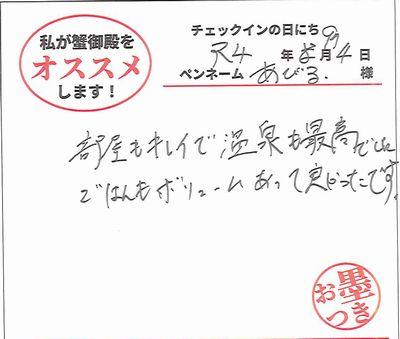 私が蟹御殿を
オススメ
します！
チェックインの日にち
R4年 月4日
ペンネーム あびる. 様
部屋もキレイで温泉も最高でした
ごはんもボリュームあって良かったです。
お墨つき